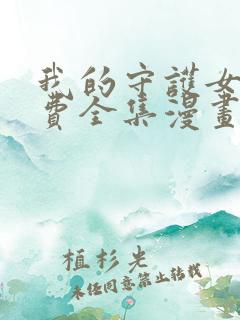 我的守護女
費全集漫畫
植杉光
未任同意禁止轉載